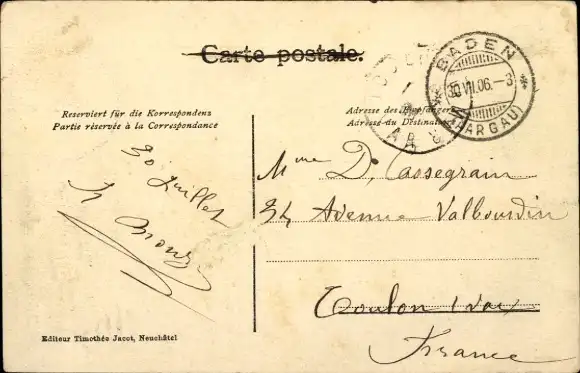 Carte postale.
BADEN
30.VII.06.-3
(AARGAU)
Reserviert für die Korrespondenz
Partie réservée à la Correspondance
Adresse des Empfängers
Adresse du Destinataire
30 Juillet
Mme D. Cassegrain
34 Avenue Valbourdin
Toulon Var
France
Editeur Timothée Jacot, Neuchâtel